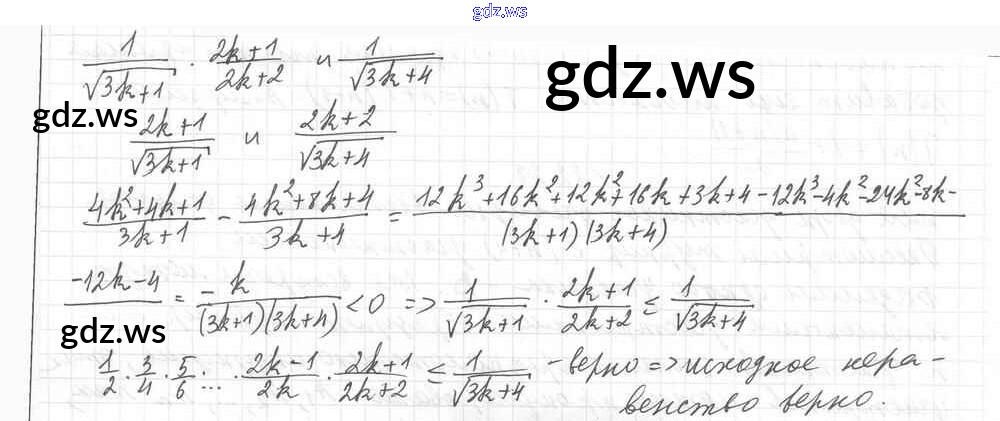 gdz.ws
1/√(3k+1) · (2k+1)/(2k+2) и 1/√(3k+4)
gdz.ws
gdz.ws
(2k+1)/√(3k+1) и (2k+2)/√(3k+4)
(4k²+4k+1)/(3k+1) - (4k²+8k+4)/(3k+4) = (12k³+16k²+12k²+16k+3k+4-12k³-4k²-24k²-8k-)/((3k+1)(3k+4))
-12k-4 = -k/((3k+1)(3k+4)) < 0 => 1/√(3k+1) · (2k+1)/(2k+2) ≤ 1/√(3k+4)
gdz.ws
1/2 · 3/4 · 5/6 ... · (2k-1)/2k · (2k+1)/(2k+2) ≤ 1/√(3k+4) - верно => исходное нера-
венство верно.